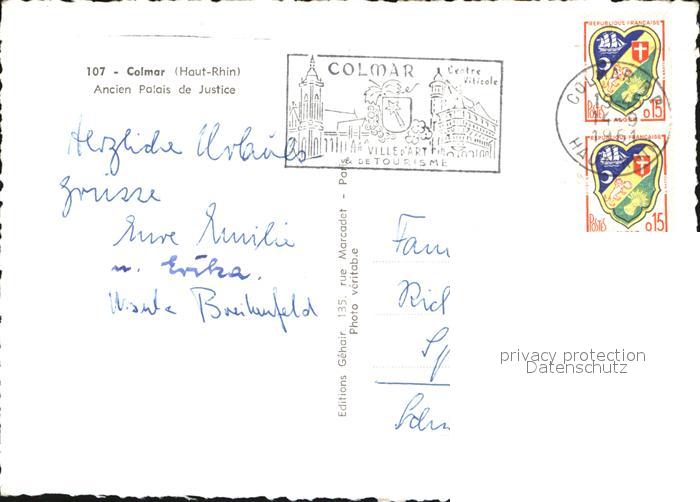 107 - Colmar (Haut-Rhin)
Ancien Palais de Justice
COLMAR
Centre
Viticole
VILLE d'ART
& DE TOURISME
REPUBLIQUE FRANÇAISE
POSTES 0,15
REPUBLIQUE FRANÇAISE
POSTES 0,15
Herzliche Urlaubs
grüsse
Eure Emilie
u. Erika.
Ursula Breitenfeld
Editions Géhair, 135, rue Marcadet - Paris
Photo véritable
Fam
privacy protection
Datenschutz